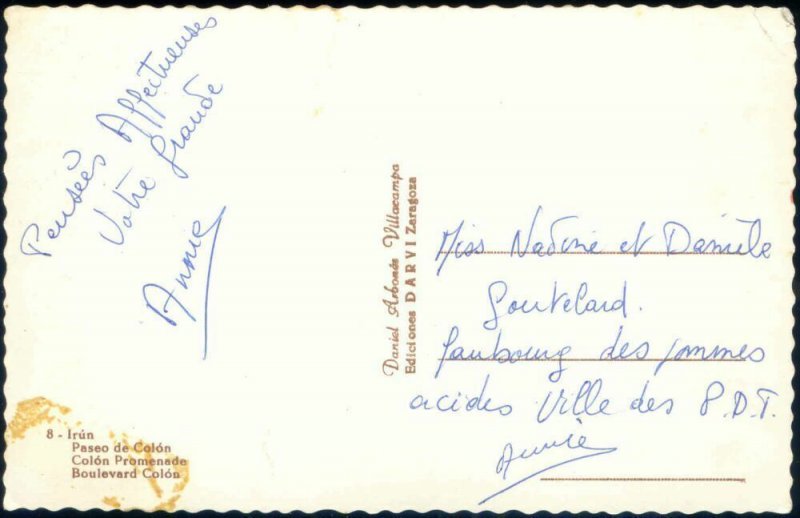 Pensées Affectueuses
Votre Grande
Annie
Daniel Arbonés Villacampa
Ediciones DARVI Zaragoza
Miss Nadine et Danièle
faubourg des pommes
acides Ville des P.D.T.
Annie
8 - Irún
Paseo de Colón
Colón Promenade
Boulevard Colón